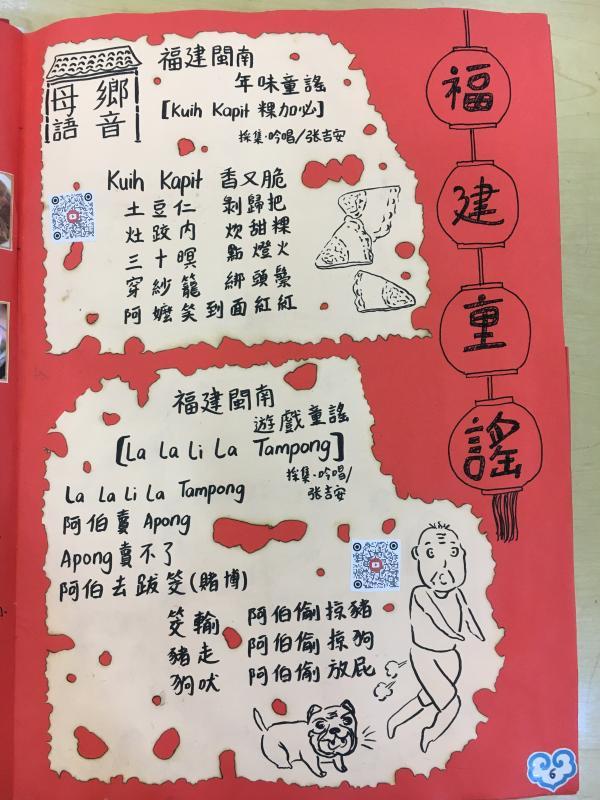 鄉音
母語
福建閩南
年味童謠
[Kuih Kapit 粿加必]
採集·吟唱/张吉安
Kuih Kapit 香又脆
土豆仁 剝歸把
灶跤内 炊甜粿
三十暝 點燈火
穿紗籠 綁頭鬃
阿嬤笑到面紅紅
福建童謠
福建閩南
遊戲童謠
[La La Li La Tampong]
採集·吟唱/
张吉安
La La Li La Tampong
阿伯賣 Apong
Apong賣不了
阿伯去跋筊(賭博)
筊輸 阿伯偷掠豬
豬走 阿伯偷掠狗
狗吠 阿伯偷放屁
6